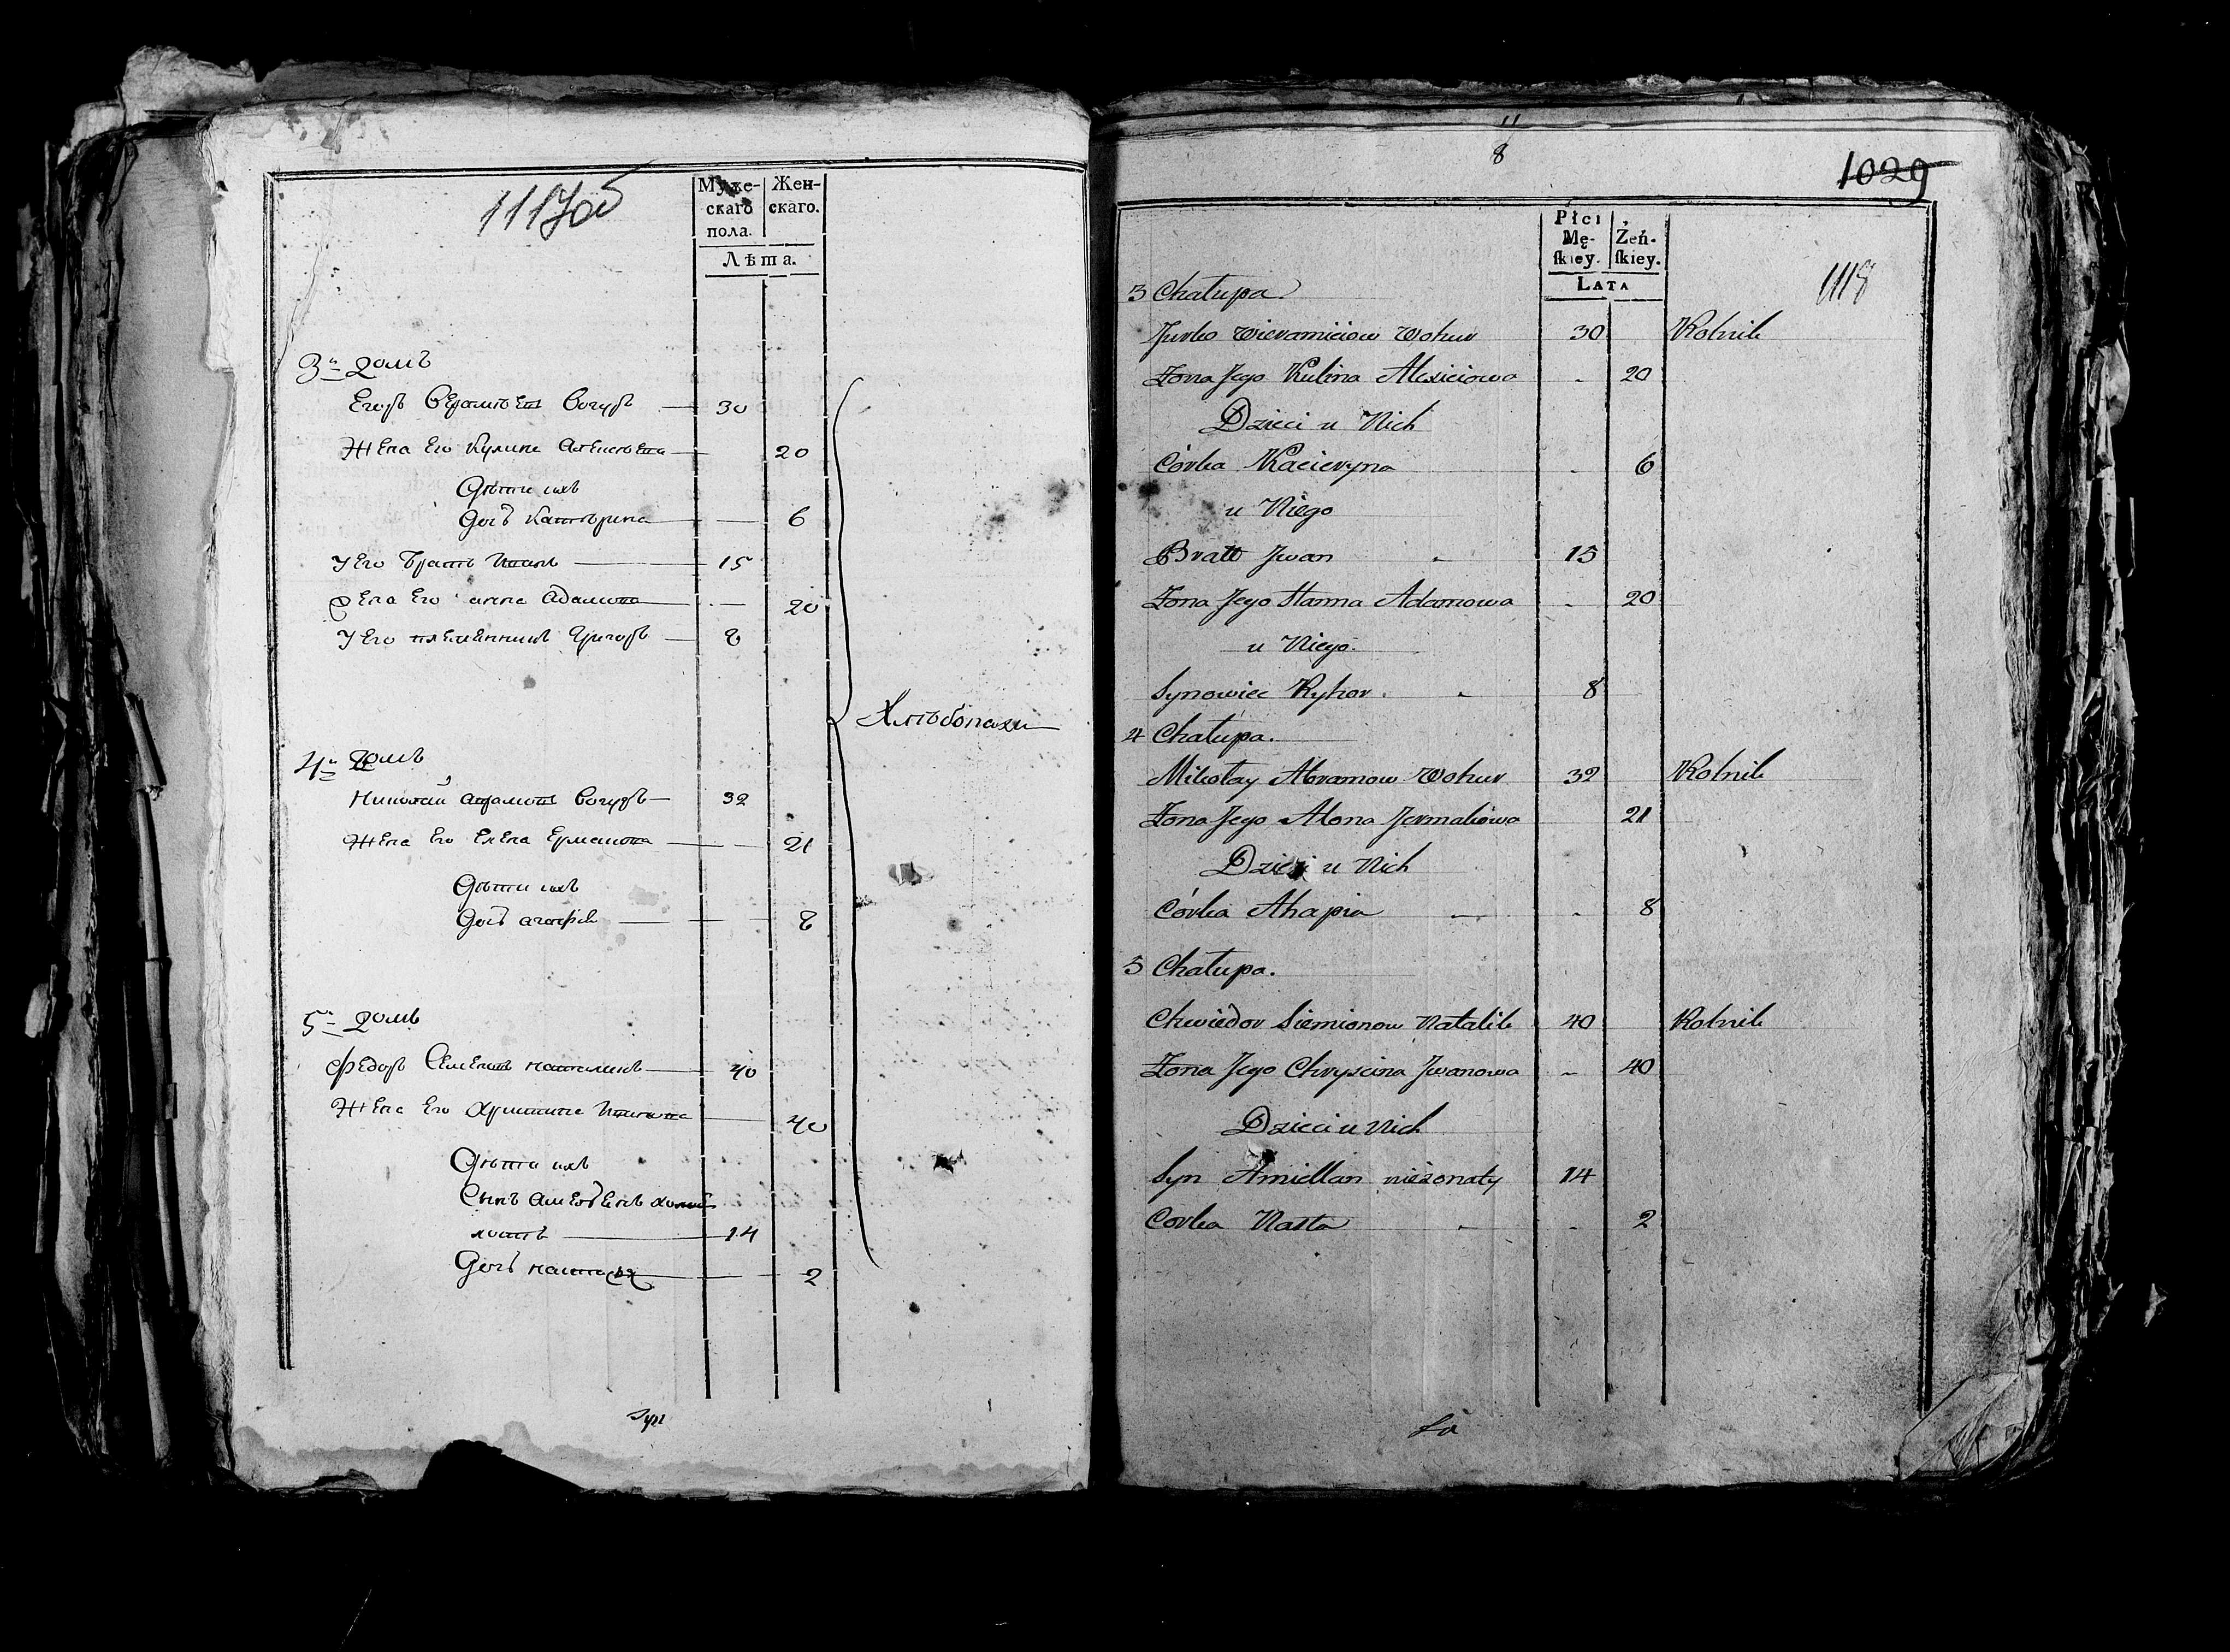 1117об
Муже-
скаго
пола.
Жен-
скаго.
Лѣта.
3й домъ
Егоръ Ерамѣевъ Вогуръ 30
Жена Его Кулина Алексѣева 20
Дѣти ихъ
Дочь Катѣрина 6
У Его братъ Иванъ 15
Жена Его анна Адамова 20
У Его племянникъ Григоръ 8
Хлѣбопахи
4й домъ
Николай аврамовъ Вогуръ 32
Жена Его Елена Ермакова 21
Дѣти ихъ
Дочь агафія 8
5й домъ
Федоръ Сменовъ наталикъ 40
Жена Его Христина Иванова 40
Дѣти ихъ
Сынъ холо
лостъ 14
Дочь настася 2
11
8
1029
1118
Płci
Mę-
ſkiey.
Żeń-
ſkiey.
LATA
3 Chałupa
Jurko Wieramieiow Wohur 30 Rolnik
Żona Jego Kulina Alexieiowa - 20
Dzieci u Nich
Córka Kacieryna - 6
u Niego
Bratt Jwan 15
Żona Jego Hanna Adamowa - 20
u Niego
Synowiec Ryhor 8
4 Chałupa.
Mikołay Abramow Wohur 32 Rolnik
Żona Jego Alona Jermakowa 21
Dzieci u Nich
Córka Ahapia - 8
5 Chałupa.
Chwiedor Siemionow Natalik 40 Rolnik
Żona Jego Chryscina Jwanowa - 40
Dzieci u Nich
Syn Amiellan nieżonaty 14
Corka Nasta - 2